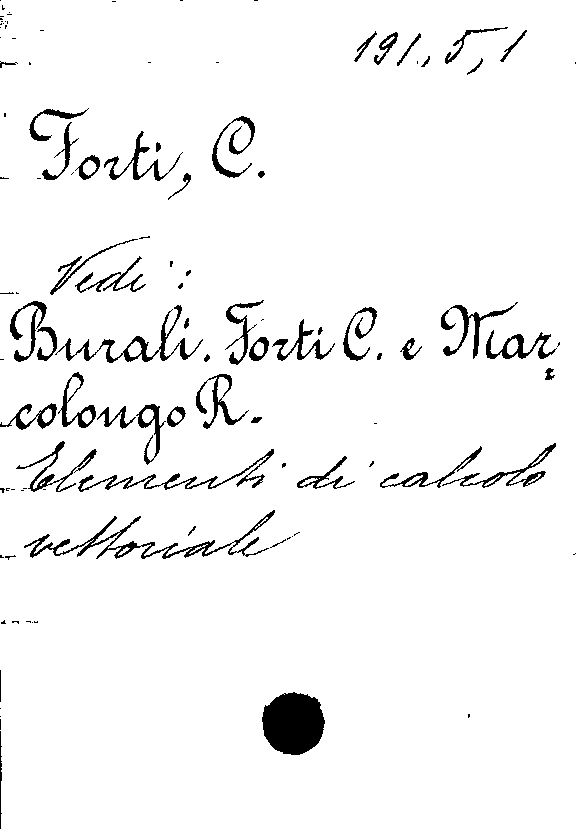 191, 5, 1
Forti, C.
Vedi:
Burali. Forti C. e Mar
colongo R.
Elementi di calcolo
vettoriale